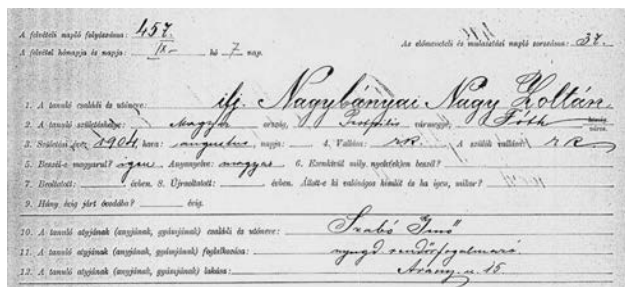 A fölvételi napló folyószáma: 457.
A fölvétel hónapja és napja: IX. hó 7 nap.
Az előmeneteli és mulasztási napló sorszáma: 37.
1. A tanuló családi és utóneve: ifj. Nagybányai Nagy Zoltán.
2. A tanuló születéshelye: Magyar ország, Pestpilis vármegye, Fóth község város.
3. Születési éve: 1904, hava: augusztus, napja: 4. Vallása: r.k. A szülők vallása: r k
5. Beszél-e magyarul? igen Anyanyelve: magyar 6. Ezenkívül mily nyelveken beszél?
7. Beoltatott: évben. 8. Újraoltatott: évben. Állott-e ki valóságos himlőt és ha igen, mikor?
9. Hány évig járt óvodába? évig.
10. A tanuló atyjának (anyjának, gyámjának) családi és utóneve: Szabó Jenő
11. A tanuló atyjának (anyjának, gyámjának) foglalkozása: nyugd. rendőrfogalmazó
12. A tanuló atyjának (anyjának, gyámjának) lakása: Arany u. 15